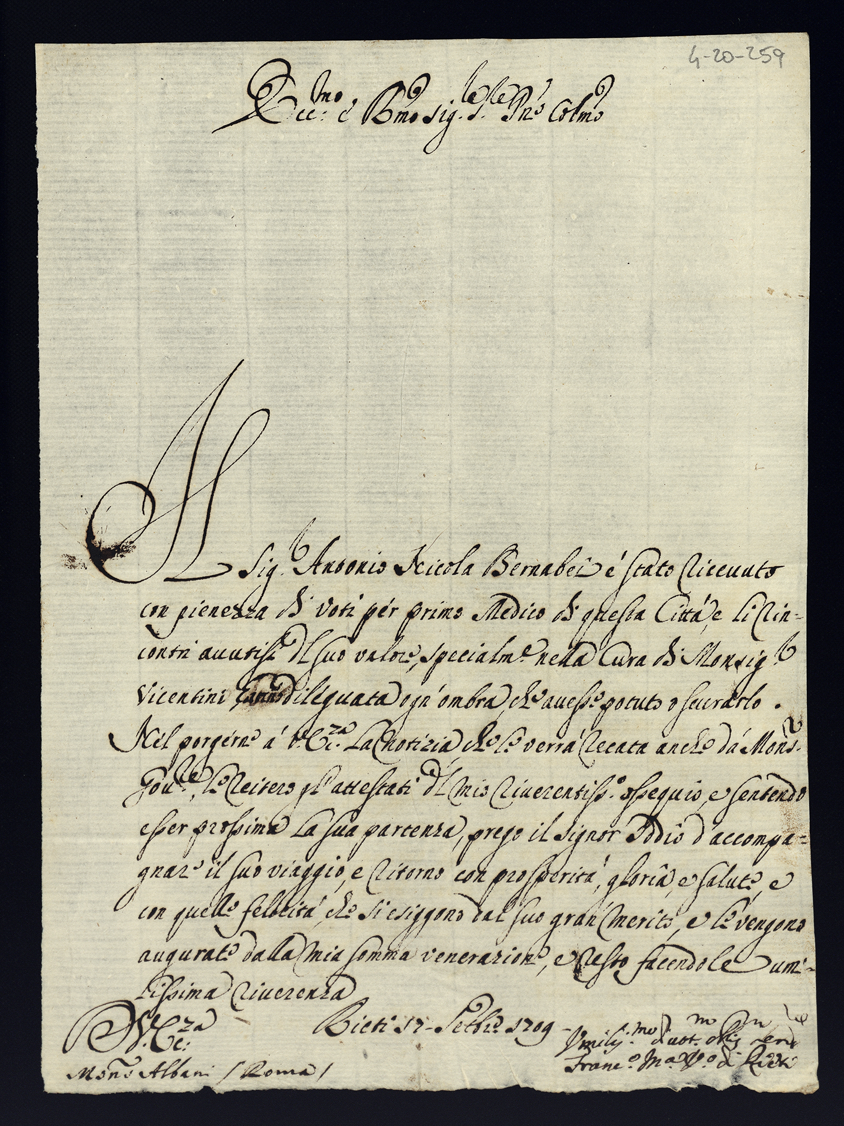 4-20-259
Ecc:mo e Rmo Sig.re S.re Pne Colmo
Il Sig.r Antonio Niccola Bernabei è stato ricevuto
con pienezza di voti per primo Medico di questa Città, e li rin=
contri avuti si d'l suo valore, specialm.e nella Cura di Monsig.r
Vicentini hanno dileguata ogn'ombra che avesse potuto oscurarlo.
Nel porgerne á V. Ecc.za La notizia che le verrá recata anche dá Mons.r
Gov.re, le reitero gl'attestati d'l mio riverentiss.o ossequio, e sentendo
esser prossima La sua partenza, prego il Signor Iddio d'accompa=
gnare il suo viaggio, e ritorno con prosperitá, gloria, e salute, e
con quelle felicitá, che si esiggono dal suo gran merito, e le vengono
augurate dalla mia somma venerazione, e resto facendole umi=
lissima riverenza
V. Ecc:za
Rieti 17 Settbre 1709
Mons Albani / Roma /
Umiliss.mo Divot.mo Obl.mo Serv.re
Franc.o M.a V.o di Rieti